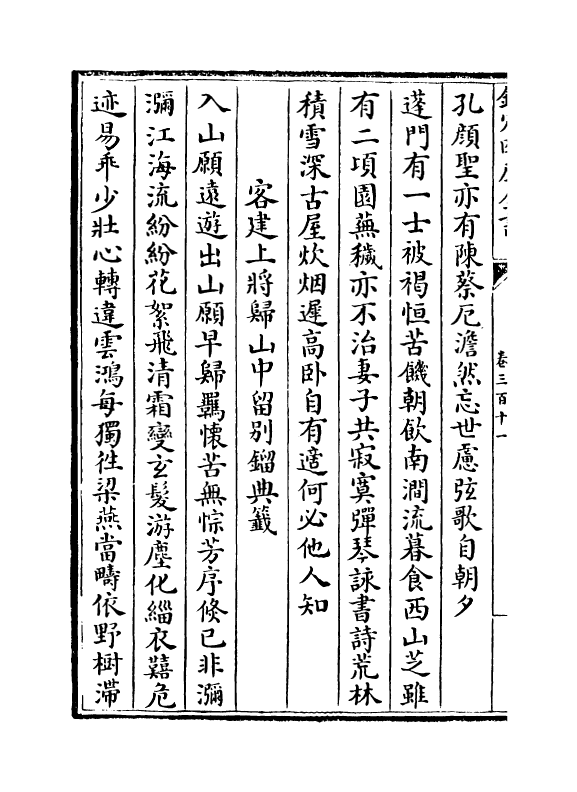 卷三百十一
孔顔聖亦有陳蔡厄澹然忘世慮弦歌自朝夕
蓬門有一士被褐恒苦饑朝飲南澗流暮食西山芝雖
有二項園蕪穢亦不治妻子共寂寞彈琴詠書詩荒林
積雪深古屋炊烟遲高卧自有適何必他人知
客建上將歸山中留别鎦典籤
入山願遠遊出山願早歸羈懷苦無悰芳序倐已非瀰
瀰江海流紛紛花絮飛清霜變玄髮游塵化緇衣囏危
迹易乖少壯心轉違雲鴻每獨徃梁燕當疇依野樹滯